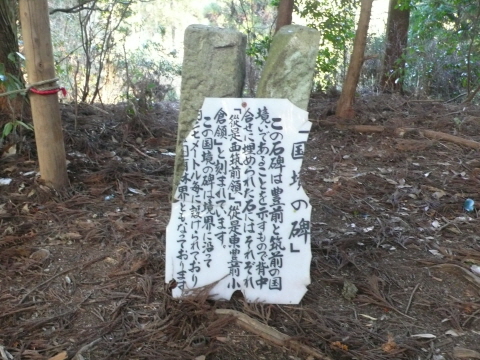 「国境の碑」
この石碑は豊前と筑前の国
境いであることを示すもので背中
合せに埋められた石にはそれぞれ
「従是西筑前領」、「従是東豊前小
倉領」と刻まれています。
この国境の碑は境界に沿って
メートル毎に設けられており
水界ともなっております